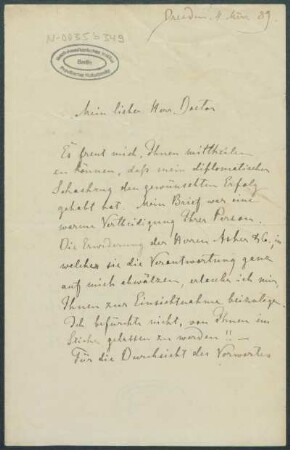 Dresden, 4 März 89.
N-0035 b 349
Berlin
Mein lieber Herr Doctor
Es freut mich, Ihnen mittheilen
zu können, daß mein diplomatischer
Schachzug den gewünschten Erfolg
gehabt hat. Mein Brief war eine
warme Vertheidigung Ihrer Person.
Die Erwiderung der Herren Asher & Co, in
welcher sie die Verantwortung ganz
auf mich abwälzen, erlaube ich mir
Ihnen zur Einsichtnahme beizulegen.
Ich befürchte nicht, von Ihnen im
Stiche gelassen zu werden!! —
Für die Durchsicht des Vorwortes